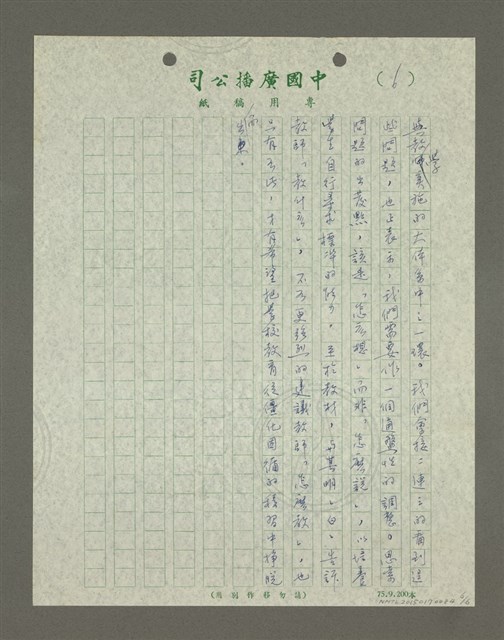 司公播廣國中
紙稿用專
(6)
與教學實施的大陣容中之一環。我們會接二連三的看到這
些問題，也正表示，我們需要作一個適應性的調整。思考
問題的出發點，該是「怎麼想」而非「怎麼說」，以培養
學生自行尋求標準的能力。至於教材，與其明白告訴
教師「教什麼」，不如更強烈的建議教師「怎麼教」，也
只有如此，才有希望把學校教育從僵化因循的積習中掙脫
而
出來。
(用別作移勿請)
75.9.200本
6/16